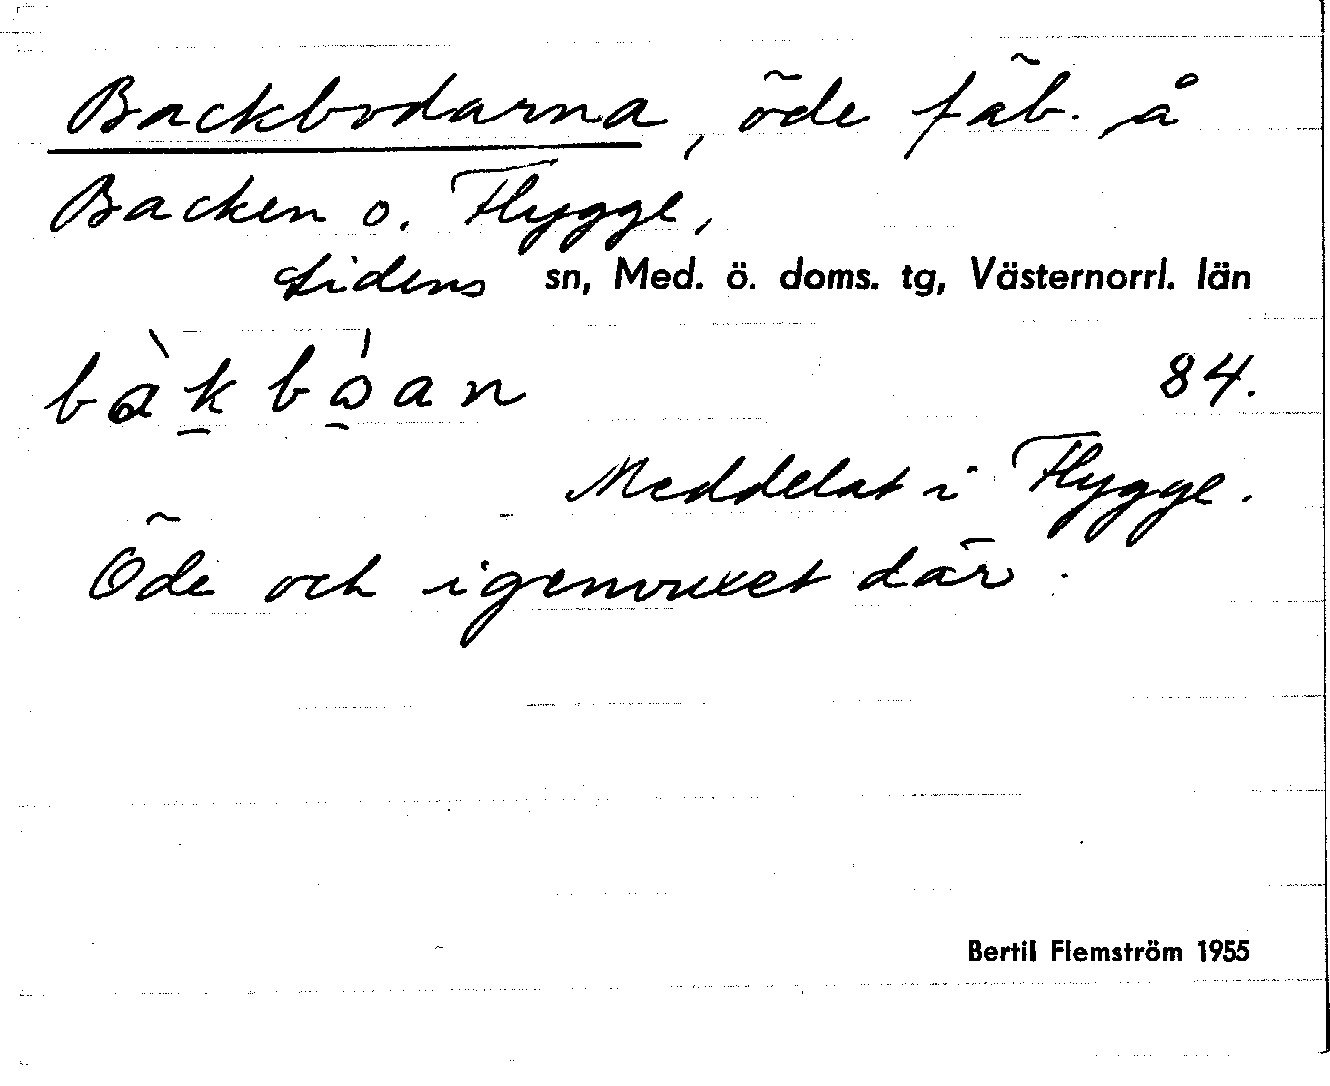 Backbodarna, öde fäb. å
Backen o. Flygge,
Lidens sn, Med. ö. doms. tg, Västernorrl. län
84.
Meddelat i Flygge.
Öde och igenvuxet där.
Bertil Flemström 1955